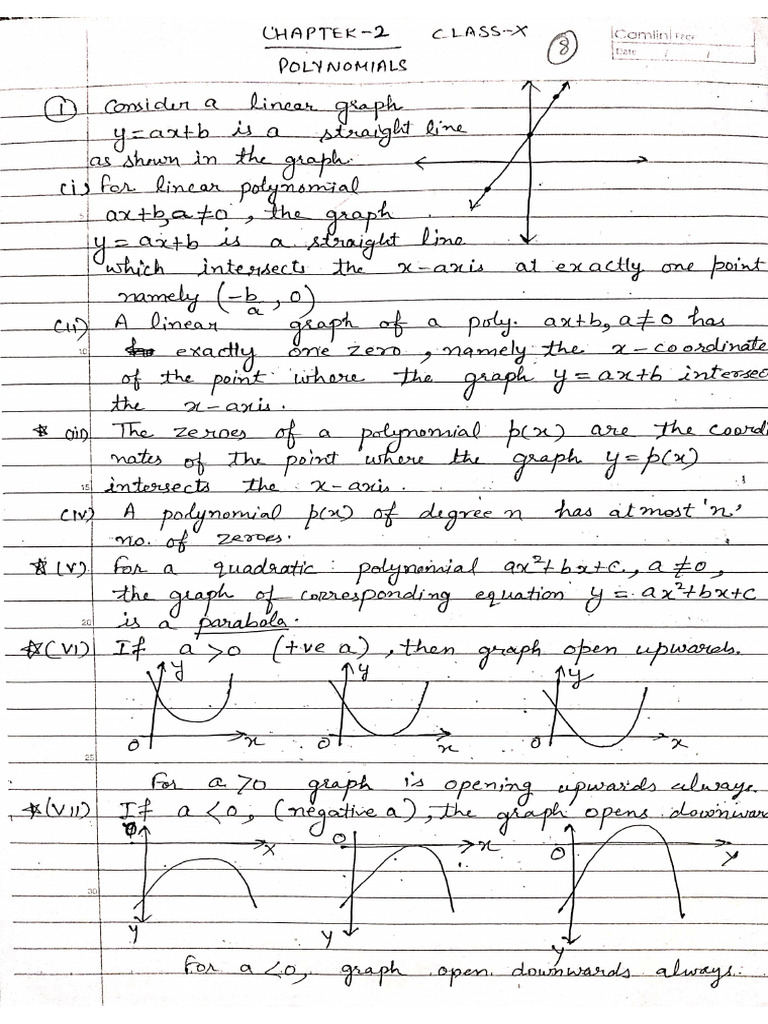 CHAPTER-2 CLASS-X
8
Comlin
Date / /
POLYNOMIALS
① Consider a linear graph
y=ax+b is a straight line
as shown in the graph.
(i) for linear polynomial
ax+b, a≠0, the graph
y=ax+b is a straight line
which intersects the x-axis at exactly one point
namely (-b/a, 0)
(ii) A linear graph of a poly. ax+b, a≠0 has
10 exactly one zero, namely the x-coordinate
of the point where the graph y=ax+b intersec
the x-axis.
* (iii) The zeroes of a polynomial p(x) are the coordi
nates of the point where the graph y=p(x)
15 intersects the x-axis.
(iv) A polynomial p(x) of degree n has atmost 'n'
no. of zeroes.
* (v) for a quadratic polynomial ax²+bx+c, a≠0,
the graph of corresponding equation y=ax²+bx+c
20 is a parabola.
* (vi) If a>0 (+ve a), then graph open upwards.
y y y
0 x 0 x 0 x
25
for a>0 graph is opening upwards always.
* (vii) If a<0, (negative a), the graph opens downwar
0 x 0 x 0 y
30
y y y
for a<0, graph open downwards always.